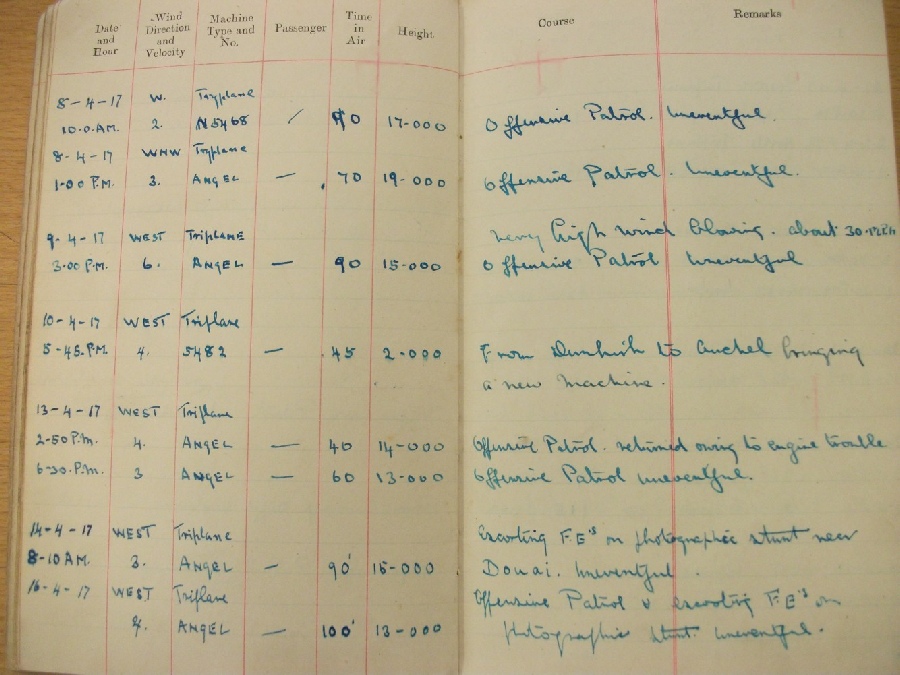 Date and Hour Wind Direction and Velocity Machine Type and No. Passenger Time in Air Height Course Remarks
8-4-17 W. Tryplane
10.0.AM. 2. N5468 / 90 17-000 Offensive Patrol. Uneventful.
8-4-17 WNW Tryplane
1.00 P.M. 3. ANGEL — 70 19-000 Offensive Patrol. Uneventful.
9-4-17 WEST TriPLANE very high wind blowing. about 30
3.00 P.M. 6. ANGEL — 90 15-000 Offensive Patrol Uneventful
10-4-17 WEST Triplane
5-45.P.M. 4. 5482 — 45 2-000 From Dunkirk to Auchel bringing
a new machine.
13-4-17 WEST Triplane
2-50 P.m. 4. ANGEL — 40 14-000 Offensive Patrol. returned owing to engine trouble
6-30.P.m. 3 ANGEL — 60 13-000 Offensive Patrol uneventful.
14-4-17 WEST Triplane Escorting F.E's on photographic stunt near
8-10 AM. 3. ANGEL — 90' 15-000 Douai. Uneventful.
16-4-17 WEST Triplane Offensive Patrol & escorting F.E's on
4. ANGEL — 100' 13-000 photographic stunt. uneventful.